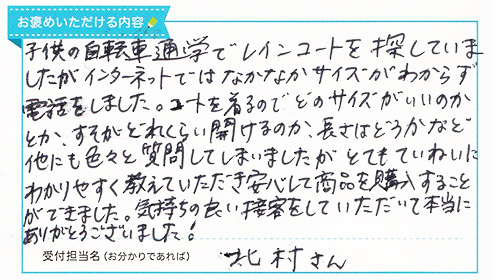 お褒めいただける内容
子供の自転車通学でレインコートを探していま
したがインターネットではなかなかサイズがわからず
電話をしました。コートを着るのでどのサイズがいいのか
とか、すそがどれくらい開けるのか、長さはどうかなど
他にも色々と質問してしまいましたがとてもていねいに
わかりやすく教えていただき安心して商品を購入すること
ができました。気持ちの良い接客をしていただいて本当に
ありがとうございました!
受付担当名(お分かりであれば) 北村さん